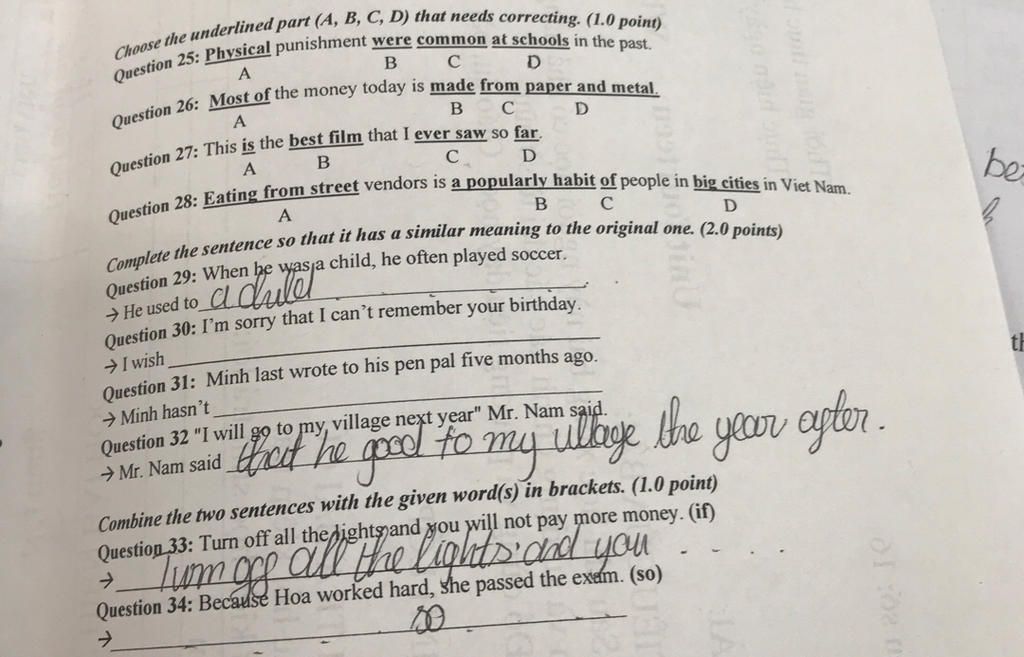 Choose the underlined part (A, B, C, D) that needs correcting. (1.0 point)
Question 25: Physical punishment were common at schools in the past.
A B C D
Question 26: Most of the money today is made from paper and metal.
A B C D
Question 27: This is the best film that I ever saw so far.
A B C D
Question 28: Eating from street vendors is a popularly habit of people in big cities in Viet Nam.
A B C D
Complete the sentence so that it has a similar meaning to the original one. (2.0 points)
Question 29: When he was a child, he often played soccer.
→ He used to a
Question 30: I'm sorry that I can't remember your birthday.
→ I wish
Question 31: Minh last wrote to his pen pal five months ago.
→ Minh hasn't
Question 32 "I will go to my village next year" Mr. Nam said.
→ Mr. Nam said that he to my village the year after.
Combine the two sentences with the given word(s) in brackets. (1.0 point)
Question 33: Turn off all the lights and you will not pay more money. (if)
→ Turn off all the lights and you - . . . .
Question 34: Because Hoa worked hard, she passed the exam. (so)
→ so